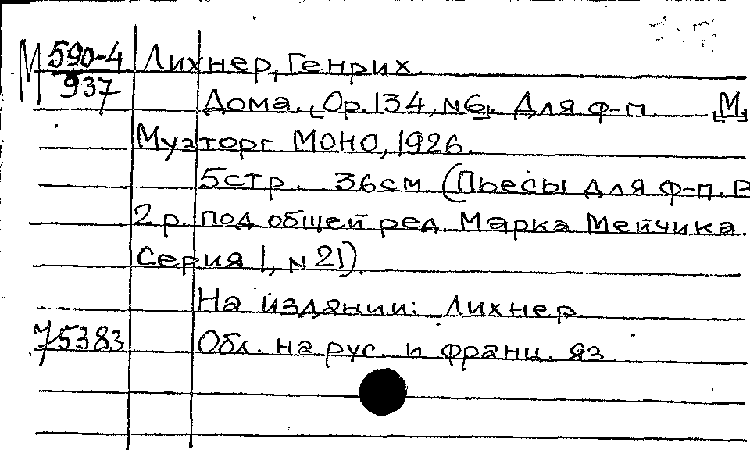 М 590-4 Лихнер, Генрих
937
Дома. [Op. 134, №6]. Для ф-п. [М.]
Музторг МОНО, 1926.
5 стр. 36 см (Пьесы для ф-п. в
2 р. под общей ред. Марка Мейчика.
Серия I, №21)
На издании: Лихнер
75383 Обл. на рус. и франц. яз